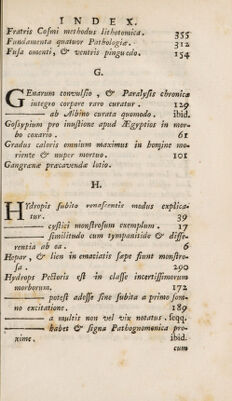 INDEX.
Fratris Cosmi methodus lithotomica. 355
Fundamenta quatuor Pathologiæ. 312
Fusa omenti, & ventris pinguedo. 154
G.
GEnarum convulsio, & Paralysis chronica
integro corpore raro curatur. 129
——— ab Albino curata quomodo. ibid.
Gossypium pro inustione apud Ægyptios in mor-
bo coxario. 61
Gradus caloris omnium maximus in homine mo-
riente & nuper mortuo. 101
Gangrænæ præcavenda lotio.
H.
HYdropis subito renascentis modus explica-
tur. 39
——— cystici monstrosum exemplum. 17
——— similitudo cum tympanitide & diffe-
rentia ab ea. 6
Hepar, & lien in emaciatis sæpe fiunt monstro-
sa. 290
Hydrops Pectoris est in classe incertissimorum
morborum. 172
——— potest adesse sine subita a primo som-
no excitatione. 189
——— a multis non vel vix notatus. seqq.
——— habet & signa Pathognomonica pro-
xime. ibid.
cum